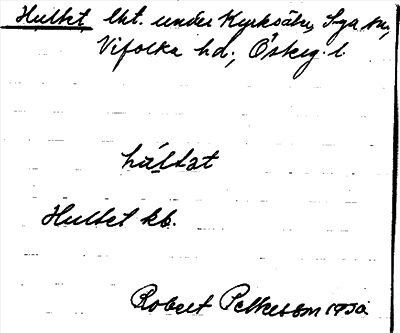 Hultet lht. under Kyrksätn, Sya sn,
Vifolka hd., Östерg. l.
húltat
Hultet kb.
Robert Pettersson 1930